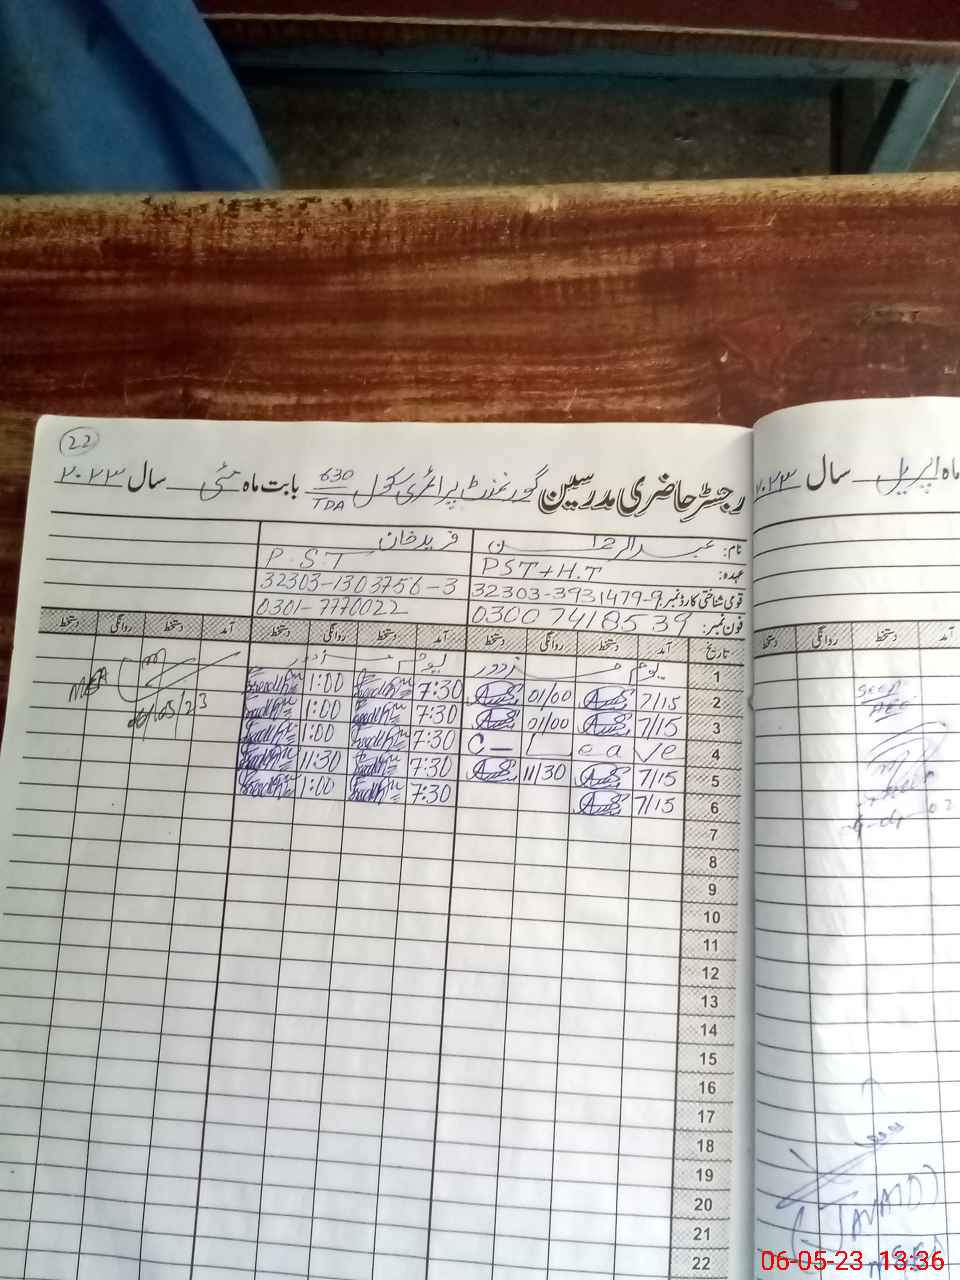 22
رجسٹر حاضری مدرسین گورنمنٹ پرائمری سکول 630/TDA بابت ماہ مئی سال ۲۰۲۳
ماہ اپریل سال ۲۰۲۳
نام: عبدالرحمٰن فرید خان
عہدہ: PST+H.T P.S.T
قومی شناختی کارڈ نمبر: 32303-3931479-9 32303-1303756-3
فون نمبر: 0300 7418539 0301-7770022
تاریخ آمد دستخط روانگی دستخط آمد دستخط روانگی دستخط آمد دستخط روانگی دستخط
1 یوم مزدور یوم مزدور
2 7/15 01/00 7:30 1:00
3 7/15 01/00 7:30 1:00
4 C-Leave 7:30 1:00
5 7/15 11/30 7:30 11:30
6 7/15 7:30 1:00
7
8
9
10
11
12
13
14
15
16
17
18
19
20
21
22
06/05/23
دستخط روانگی دستخط
(JAVAID)
06-05-23 13:36